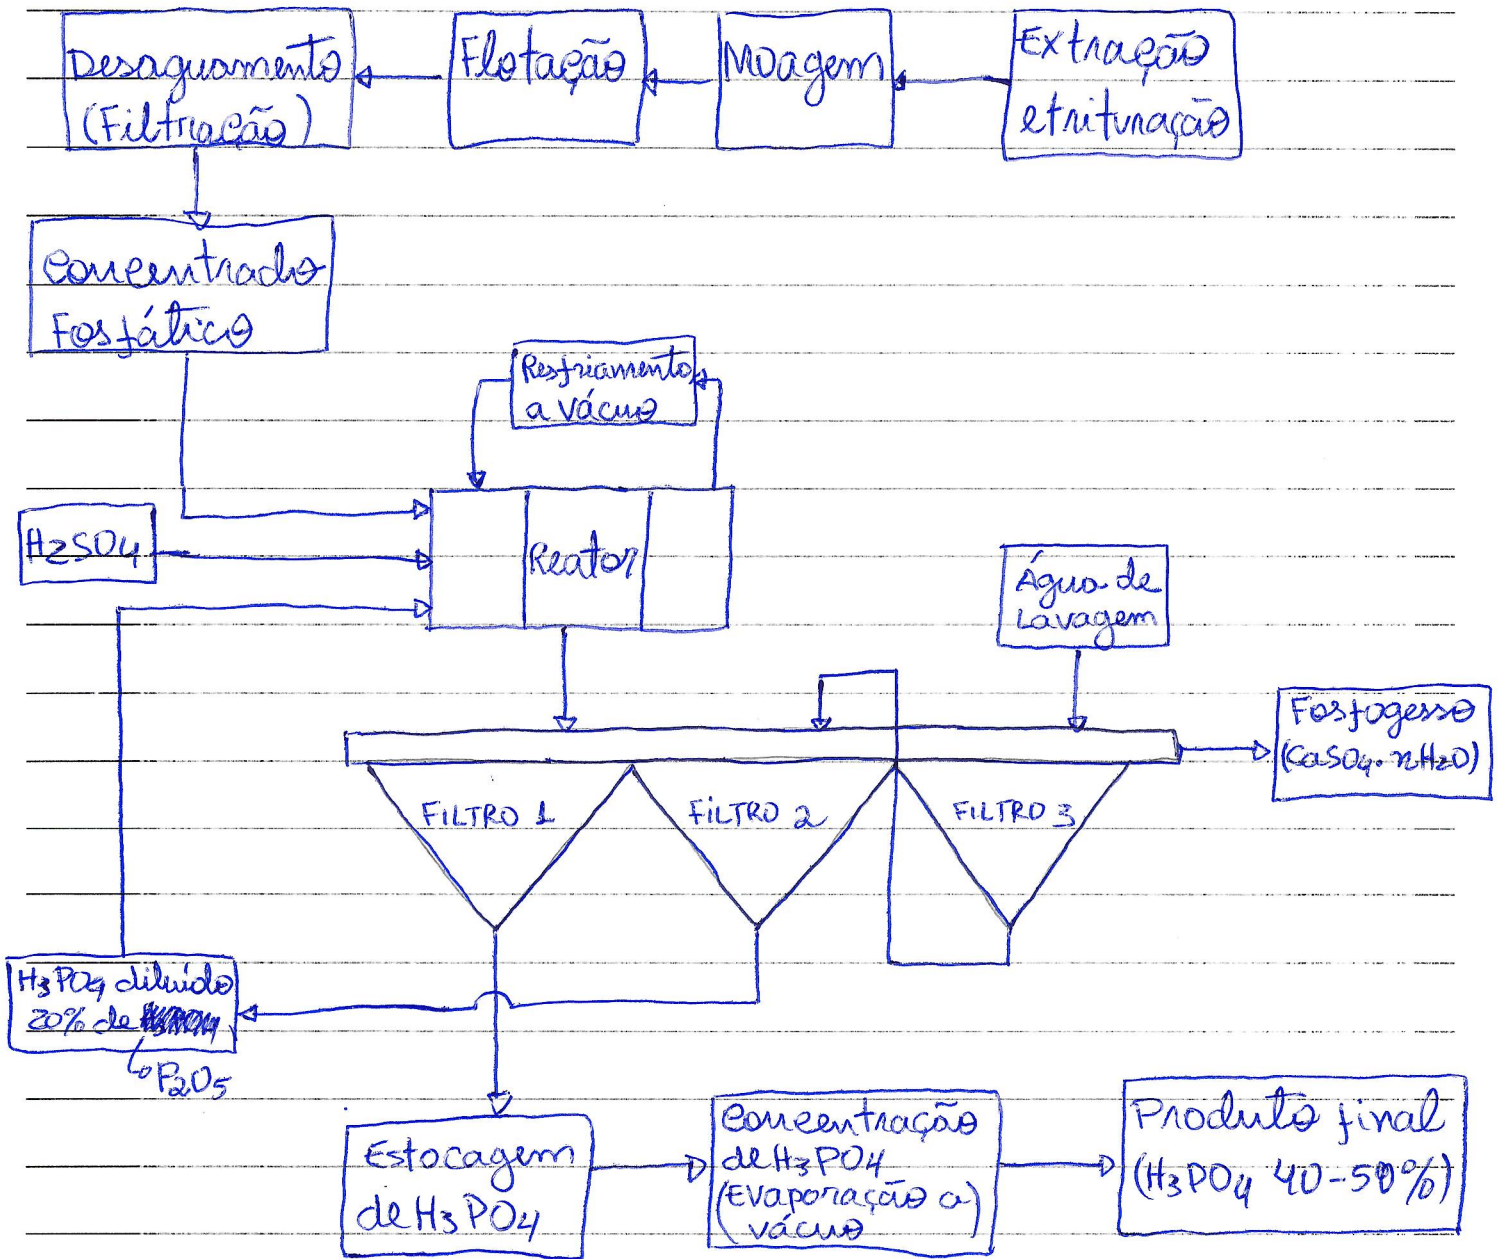 Desaguamento
(Filtração)
Flotação
Moagem
Extração
e trituração
Concentrado
Fosfático
Resfriamento
a vácuo
H2SO4
Reator
Água de
Lavagem
Fosfogesso
(CaSO4.nH2O)
FILTRO 1
FILTRO 2
FILTRO 3
H3PO4 diluído
20% de
P2O5
Estocagem
de H3PO4
Concentração
de H3PO4
(Evaporação a)
vácuo
Produto final
(H3PO4 40-50%)